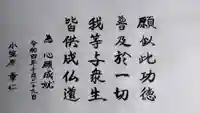 願以此功徳
普及於一切
我等于衆生
皆供成仏道
為 心願成就
令和四年十月二十九日
小笠原 章仁